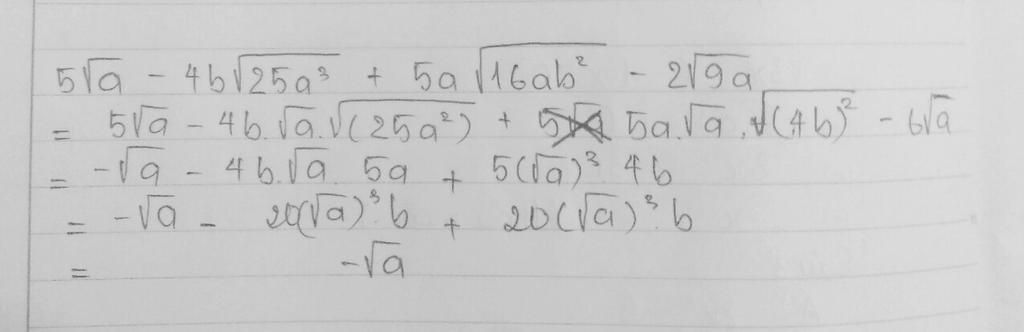 5√a - 4b√25a³ + 5a√16ab² - 2√9a
= 5√a - 4b.√a.√(25a²) + 5a.√a.√(4b)² - 6√a
= -√a - 4b.√a. 5a + 5(√a)³ 4b
= -√a - 20(√a)³.b + 20(√a)³.b
= -√a